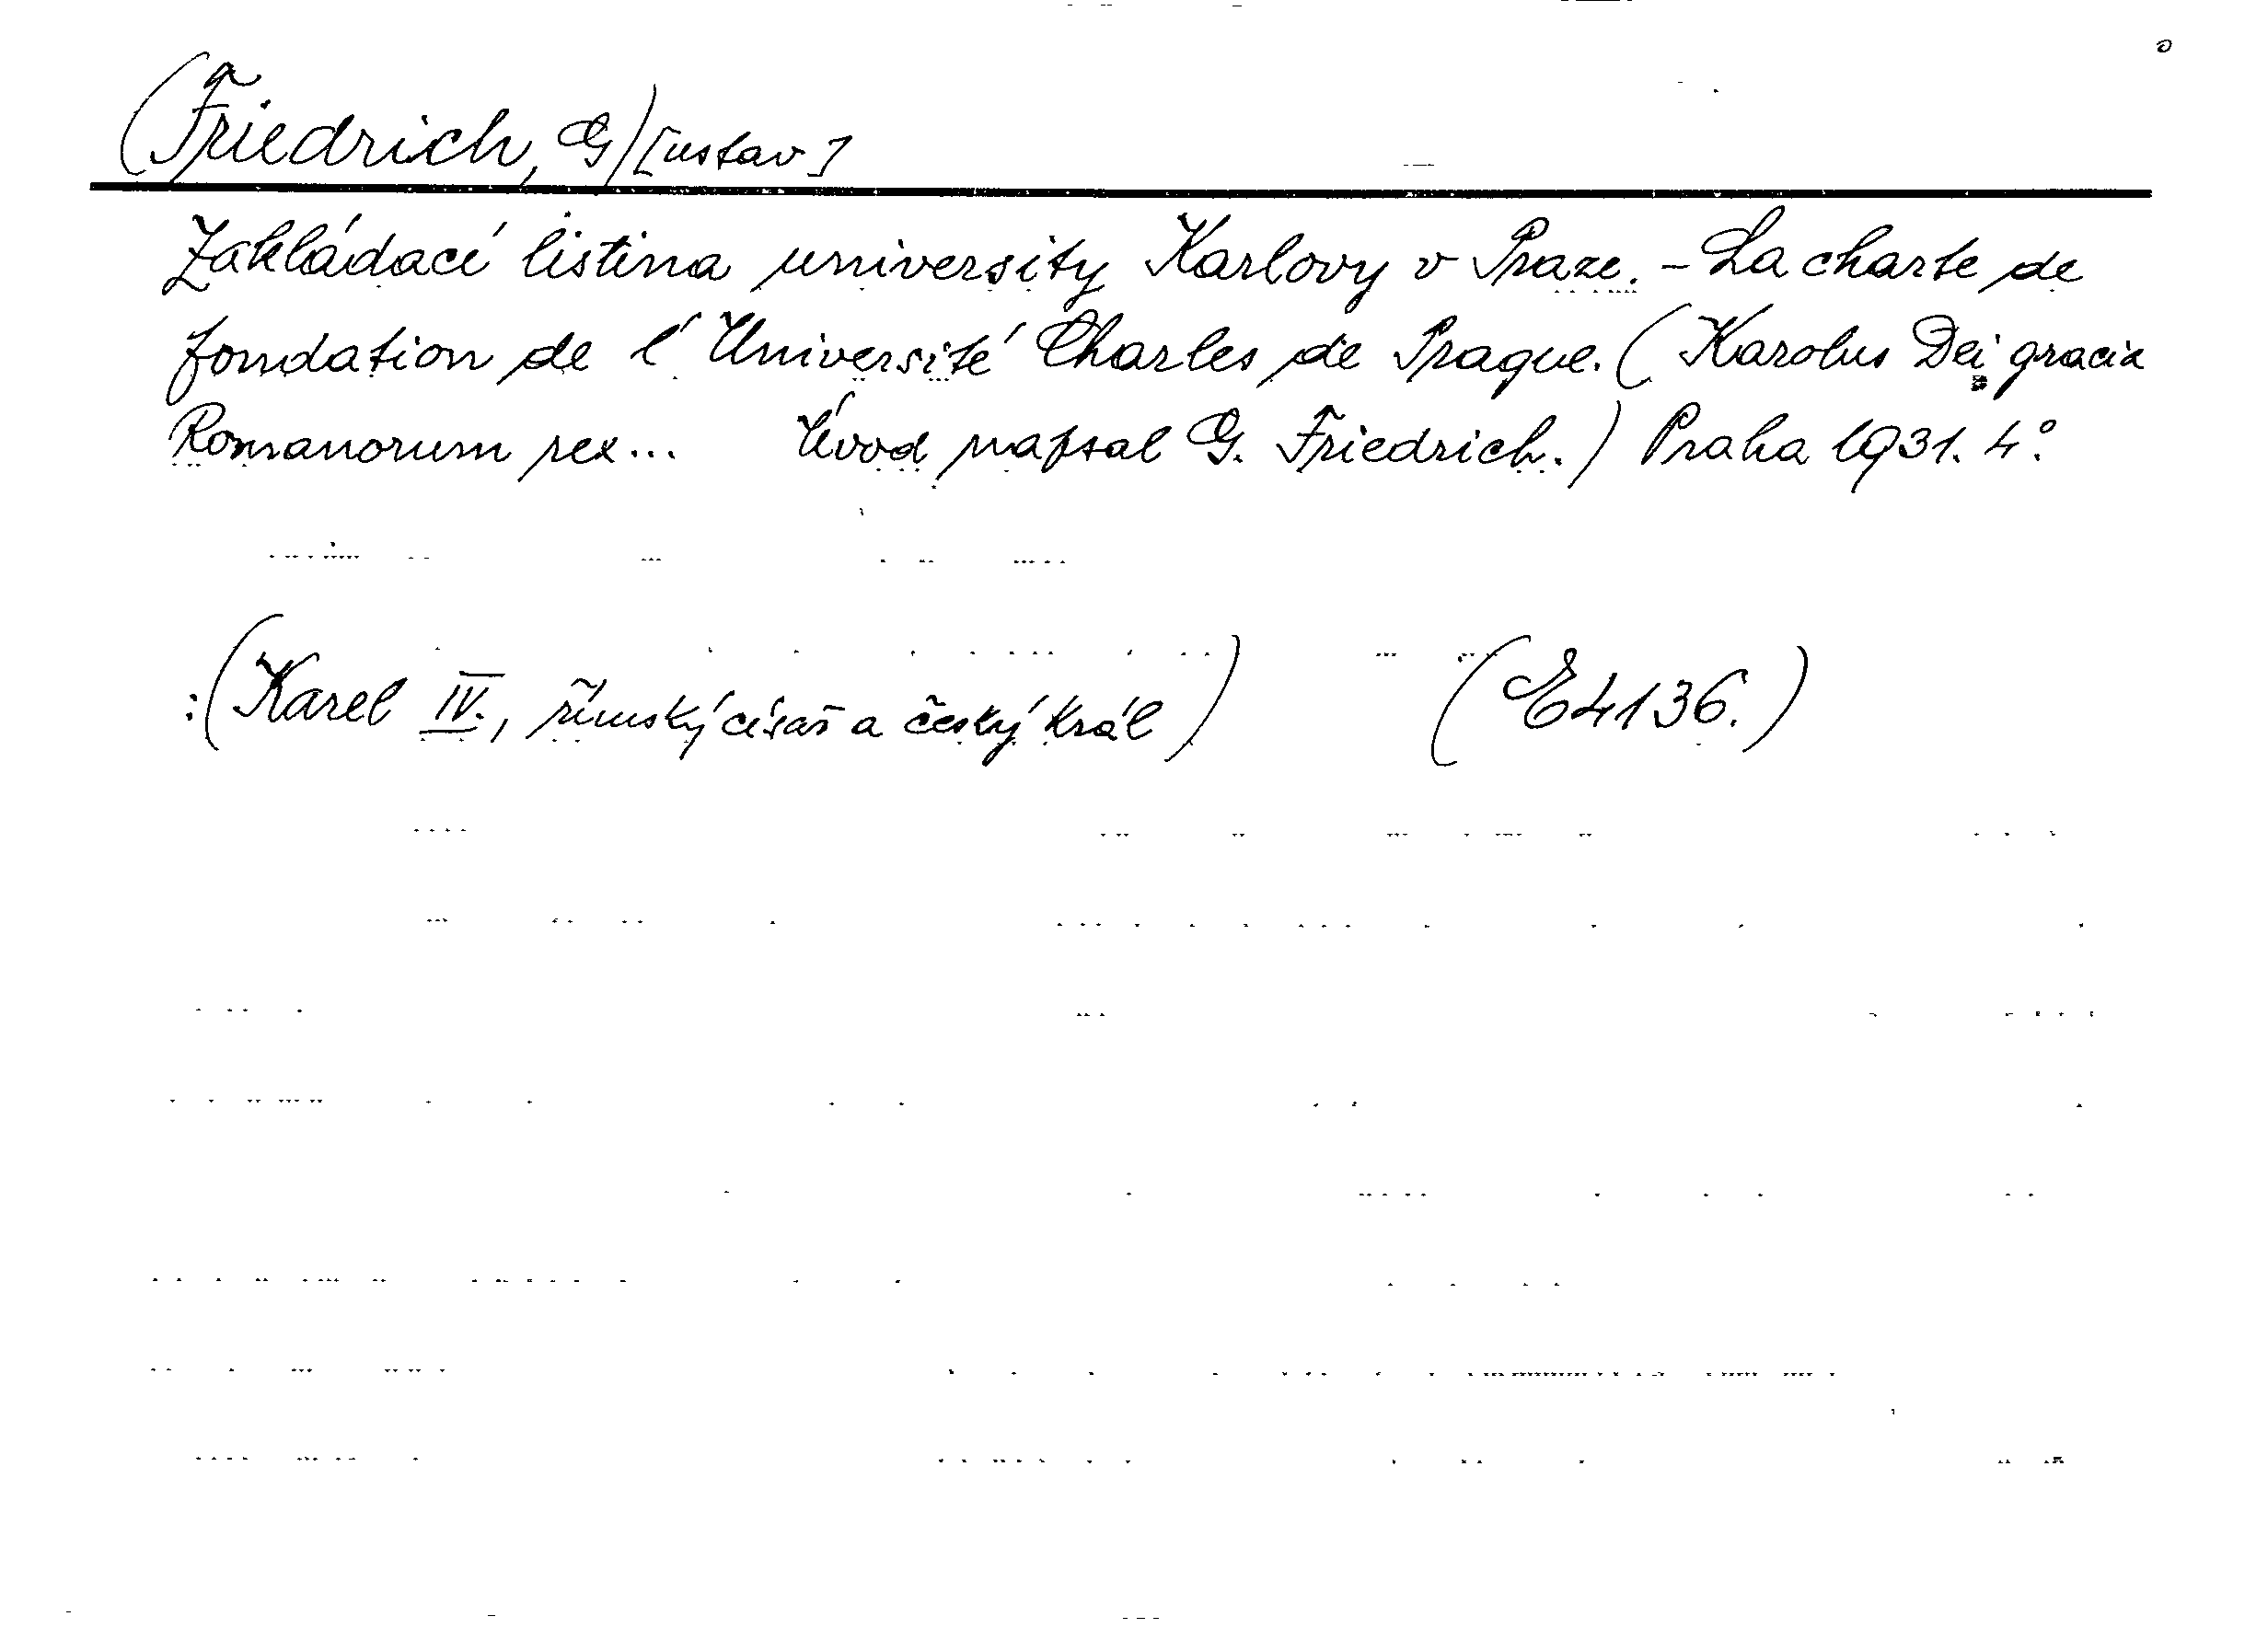 (Friedrich, G)[ustav]
Zakládací listina university Karlovy v Praze. - La charte de
fondation de l'Université Charles de Prague. (Karolus Dei gracia
Romanorum rex... Úvod napsal G. Friedrich.) Praha 1931. 4°.
:(Karel IV., římský císař a český král) (E4136.)